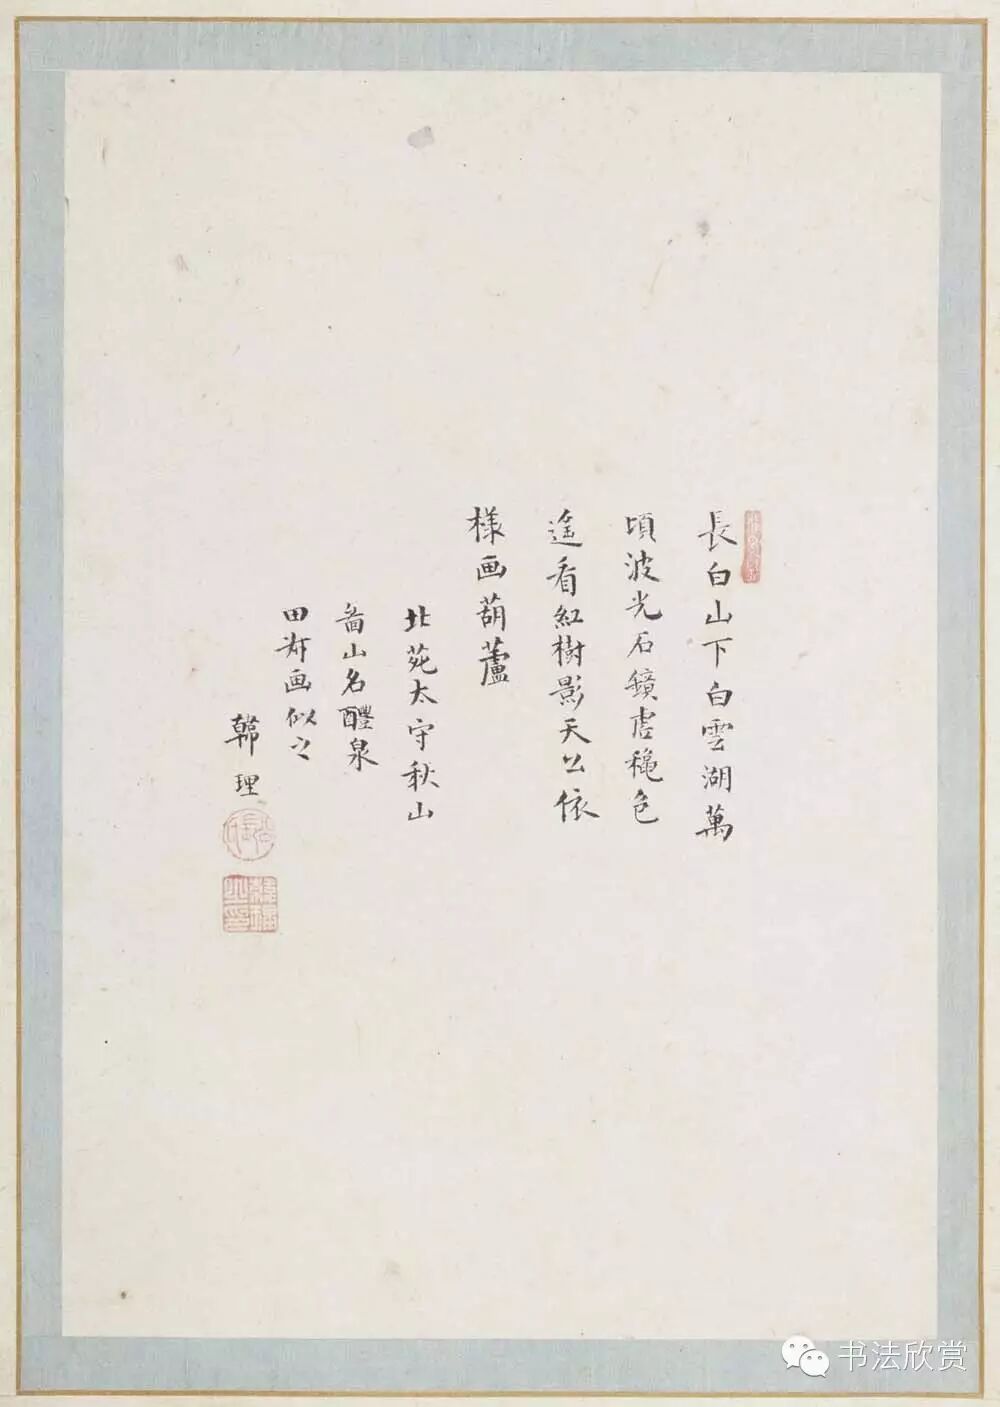 長白山下白雲湖萬
頃波光石鏡虛穐色
遥看紅樹影天公依
様画葫蘆
北苑太守秋山
啚山名醴泉
田斿画似之
韓理
书法欣赏